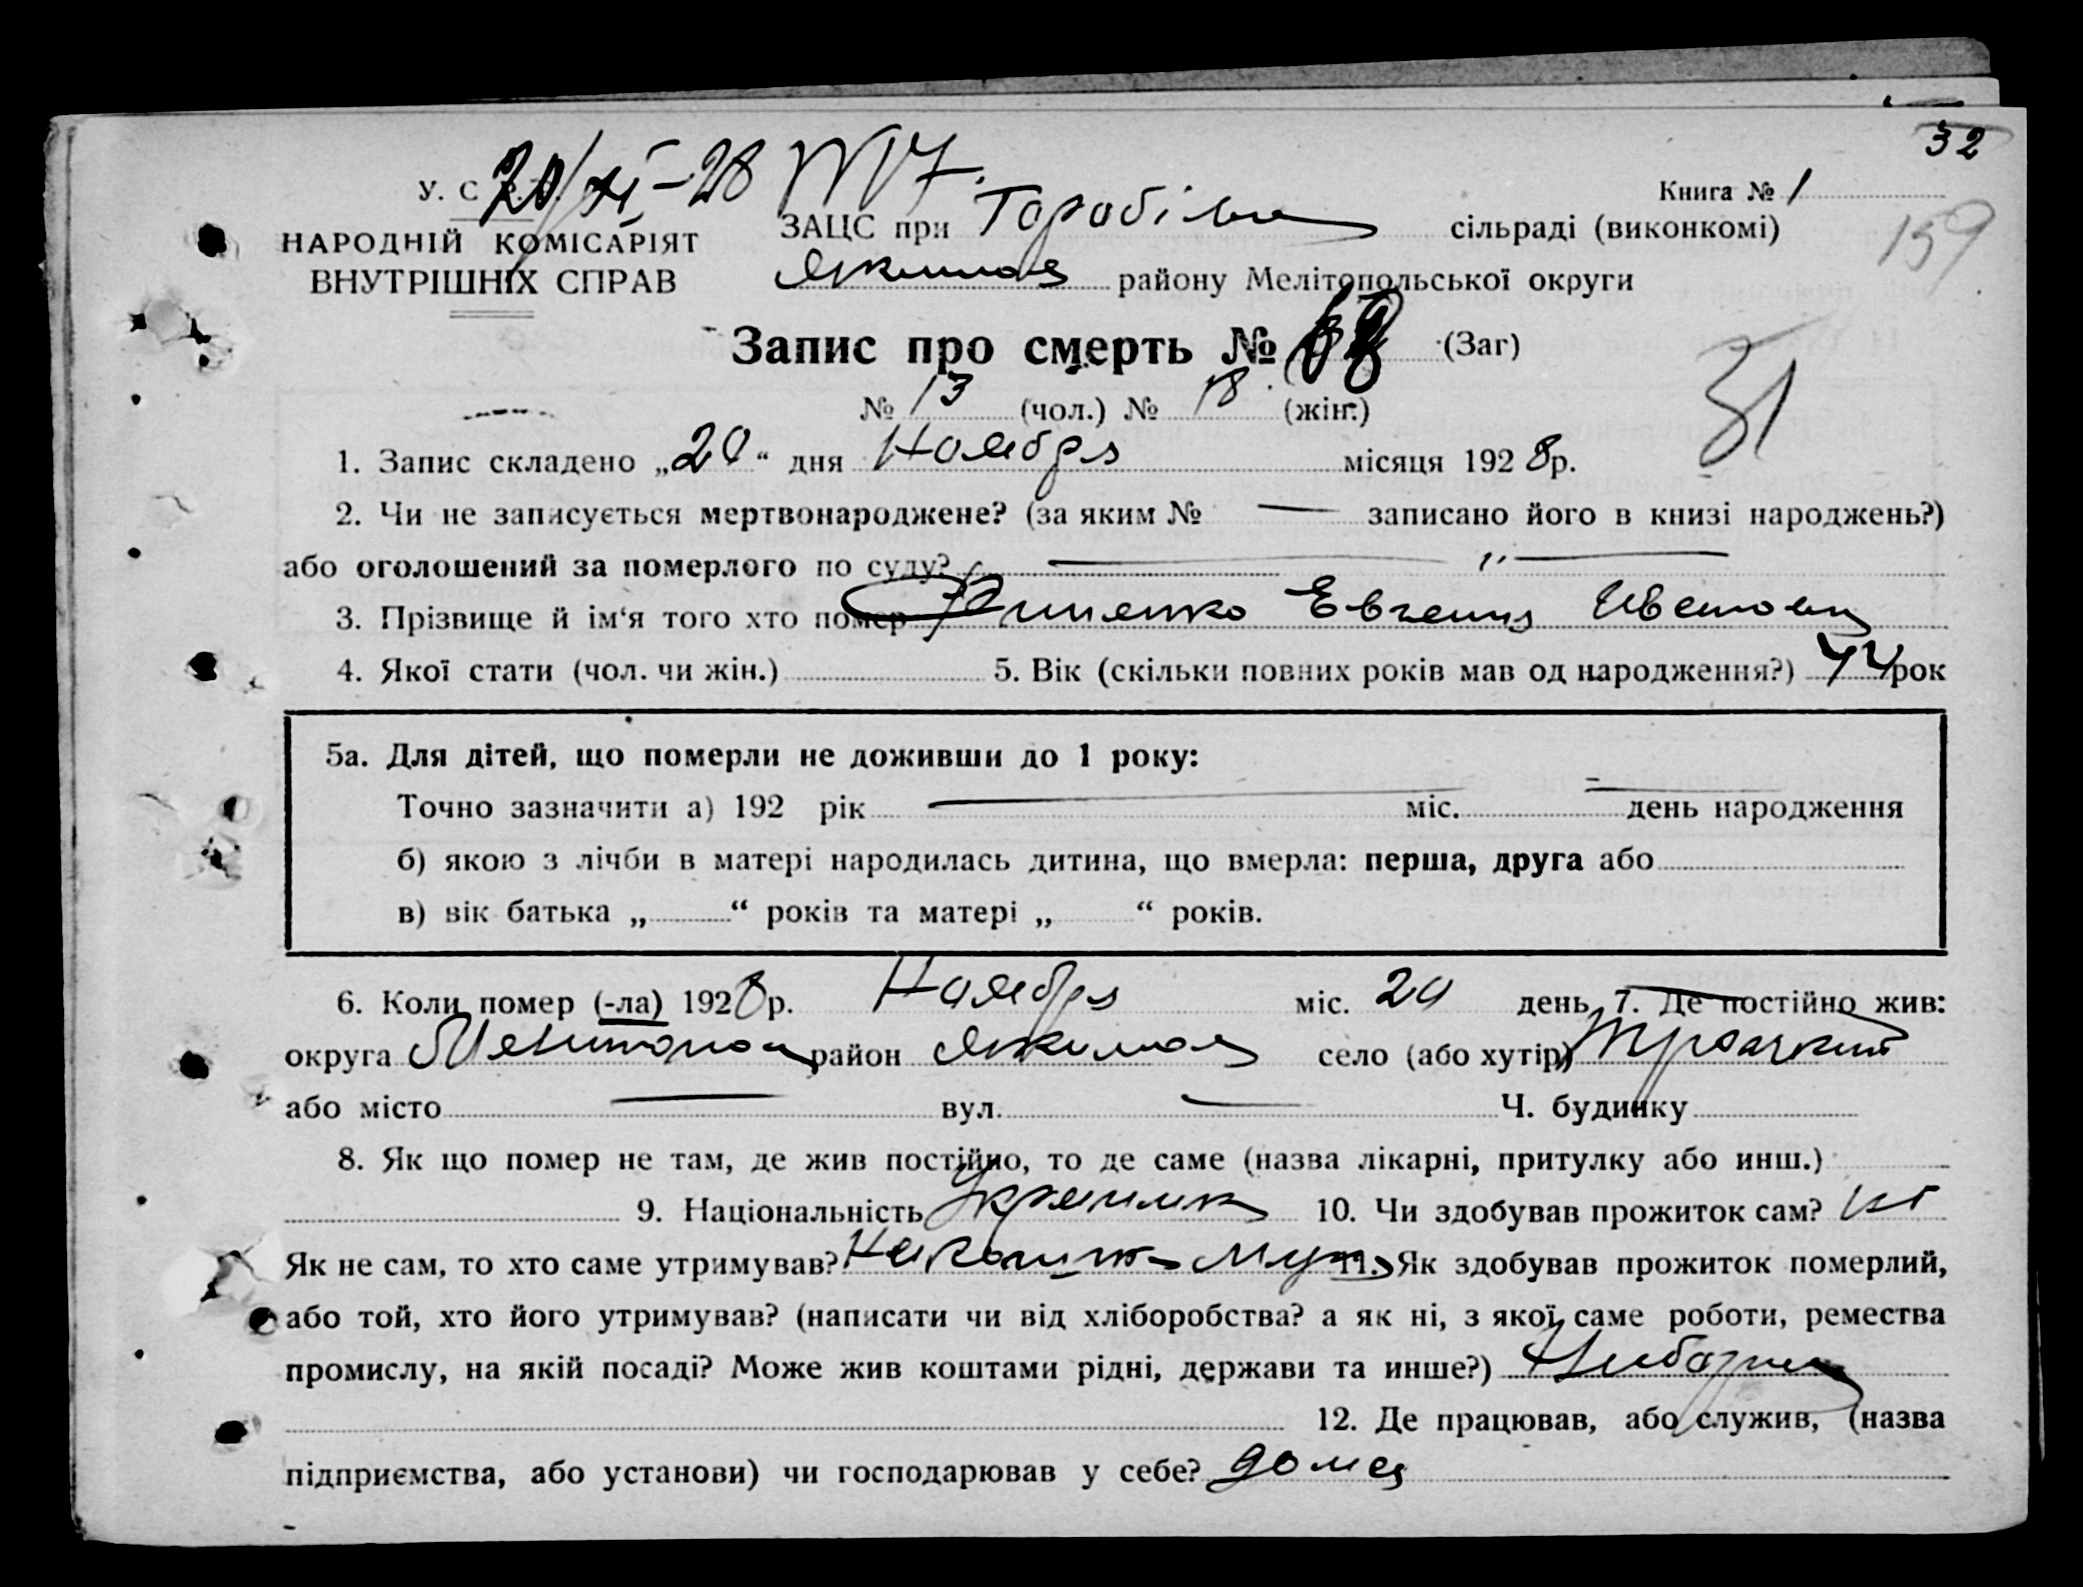 32
У. С 20/XI-28
Книга № 1
НАРОДНІЙ КОМІСАРІЯТ
ВНУТРІШНІХ СПРАВ
159
ЗАЦС при сільраді (виконкомі)
Якимов району Мелітопольської округи
Запис про смерть № (Заг)
31
№ 13 (чол.) № 18 (жін.)
1. Запис складено „20“ дня Ноября місяця 1928 р.
2. Чи не записується мертвонароджене? (за яким № — записано його в книзі народжень?)
або оголошений за померлого по суду? — " —
3. Прізвище й ім‘я того хто помер Евгения Ивановн
4. Якої стати (чол. чи жін.) 5. Вік (скільки повних років мав од народження?) 44 рок
5а. Для дітей, що померли не доживши до 1 року:
Точно зазначити а) 192 рік — міс. — день народження
б) якою з лічби в матері народилась дитина, що вмерла: перша, друга або
в) вік батька „ “ років та матері „ “ років.
6. Коли помер (-ла) 1928 р. Ноября міс. 20 день 7. Де постійно жив:
округа Мелитопол район Якимов село (або хутір) Троицкий
або місто — вул. — Ч. будинку
8. Як що помер не там, де жив постійно, то де саме (назва лікарні, притулку або инш.)
9. Національність 10. Чи здобував прожиток сам?
Як не сам, то хто саме утримував? муж 11. Як здобував прожиток померлий,
або той, хто його утримував? (написати чи від хліборобства? а як ні, з якої саме роботи, ремества
промислу, на якій посаді? Може жив коштами рідні, держави та инше?)
12. Де працював, або служив, (назва
підприємства, або установи) чи господарював у себе? дома